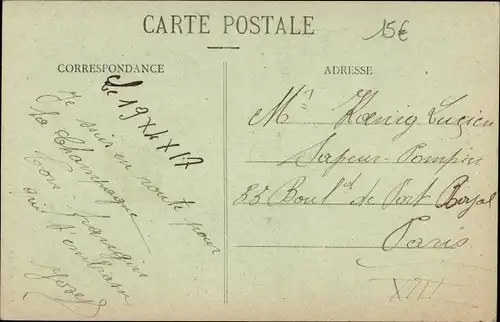 CARTE POSTALE
15€
CORRESPONDANCE
ADRESSE
Le 19 X 4 X 17
Je suis en route pour
la Champagne
Ton frangin
qui t'embrasse
Joseph
Mr Kœnig Lucien
Sapeur-Pompier
25 Boul d de Port Royal
Paris
XIII